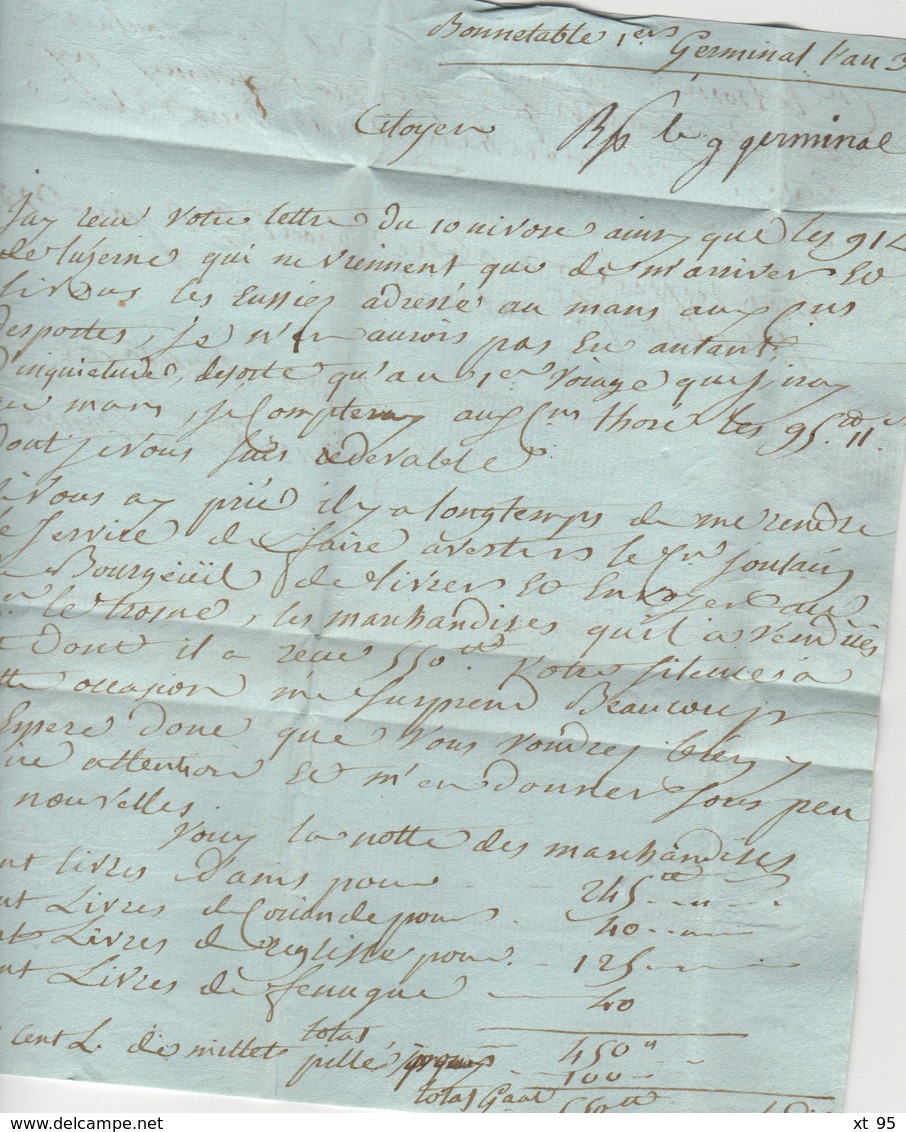 Bonnetable 1er Germinal l'an 3
Citoyen Rp le 9 germinal
J'ay reçu votre lettre du 10 nivose ainsy que les 91 L
de luzerne qui ne viennent que de m'arriver et
si vous les eussiez adressé au mans aux Cns
desportes, je n'en aurois pas eu autant
d'inquietude, desorte qu'au 1er voiage que j'iray
au mans, je compteray aux Cns thoré les 95
dont je vous suis redevable
vous ay prié il y a longtemps de me rendre
le service de faire avertir le Cn
a Bourgeüil de livrer et envoyer au
Cn letrosne, les marchandises qu'il a vendües
et dont il a reçu 550 tt Votre silence a
cette occasion me surprend Beaucoup
Espere donc que vous voudrez bien y
faire attention et m'en donner sous peu
nouvelles.
Voicy la notte des marchandises
cent livres d'anis pour 245
cent Livres de Coriande pour 40
cent Livres de reglisse pour 125
cent Livres de fenugué 40
total 450 "
cent L. de millet pillé 100
total Gaal 550 tt
xt 95